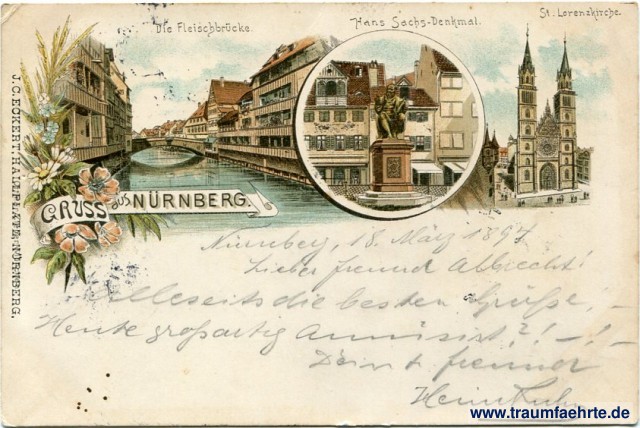 Die Fleischbrücke.
Hans Sachs-Denkmal.
St. Lorenzkirche.
J.C. ECKERT, HALLPLATZ, NÜRNBERG.
GRUSS aus NÜRNBERG.
Nürnberg, 18. März 1897
Lieber Freund Albrecht!
Allseits die besten Grüße,
Heute großartig amüsirt?! - !
Dein Freund
www.traumfaehrte.de